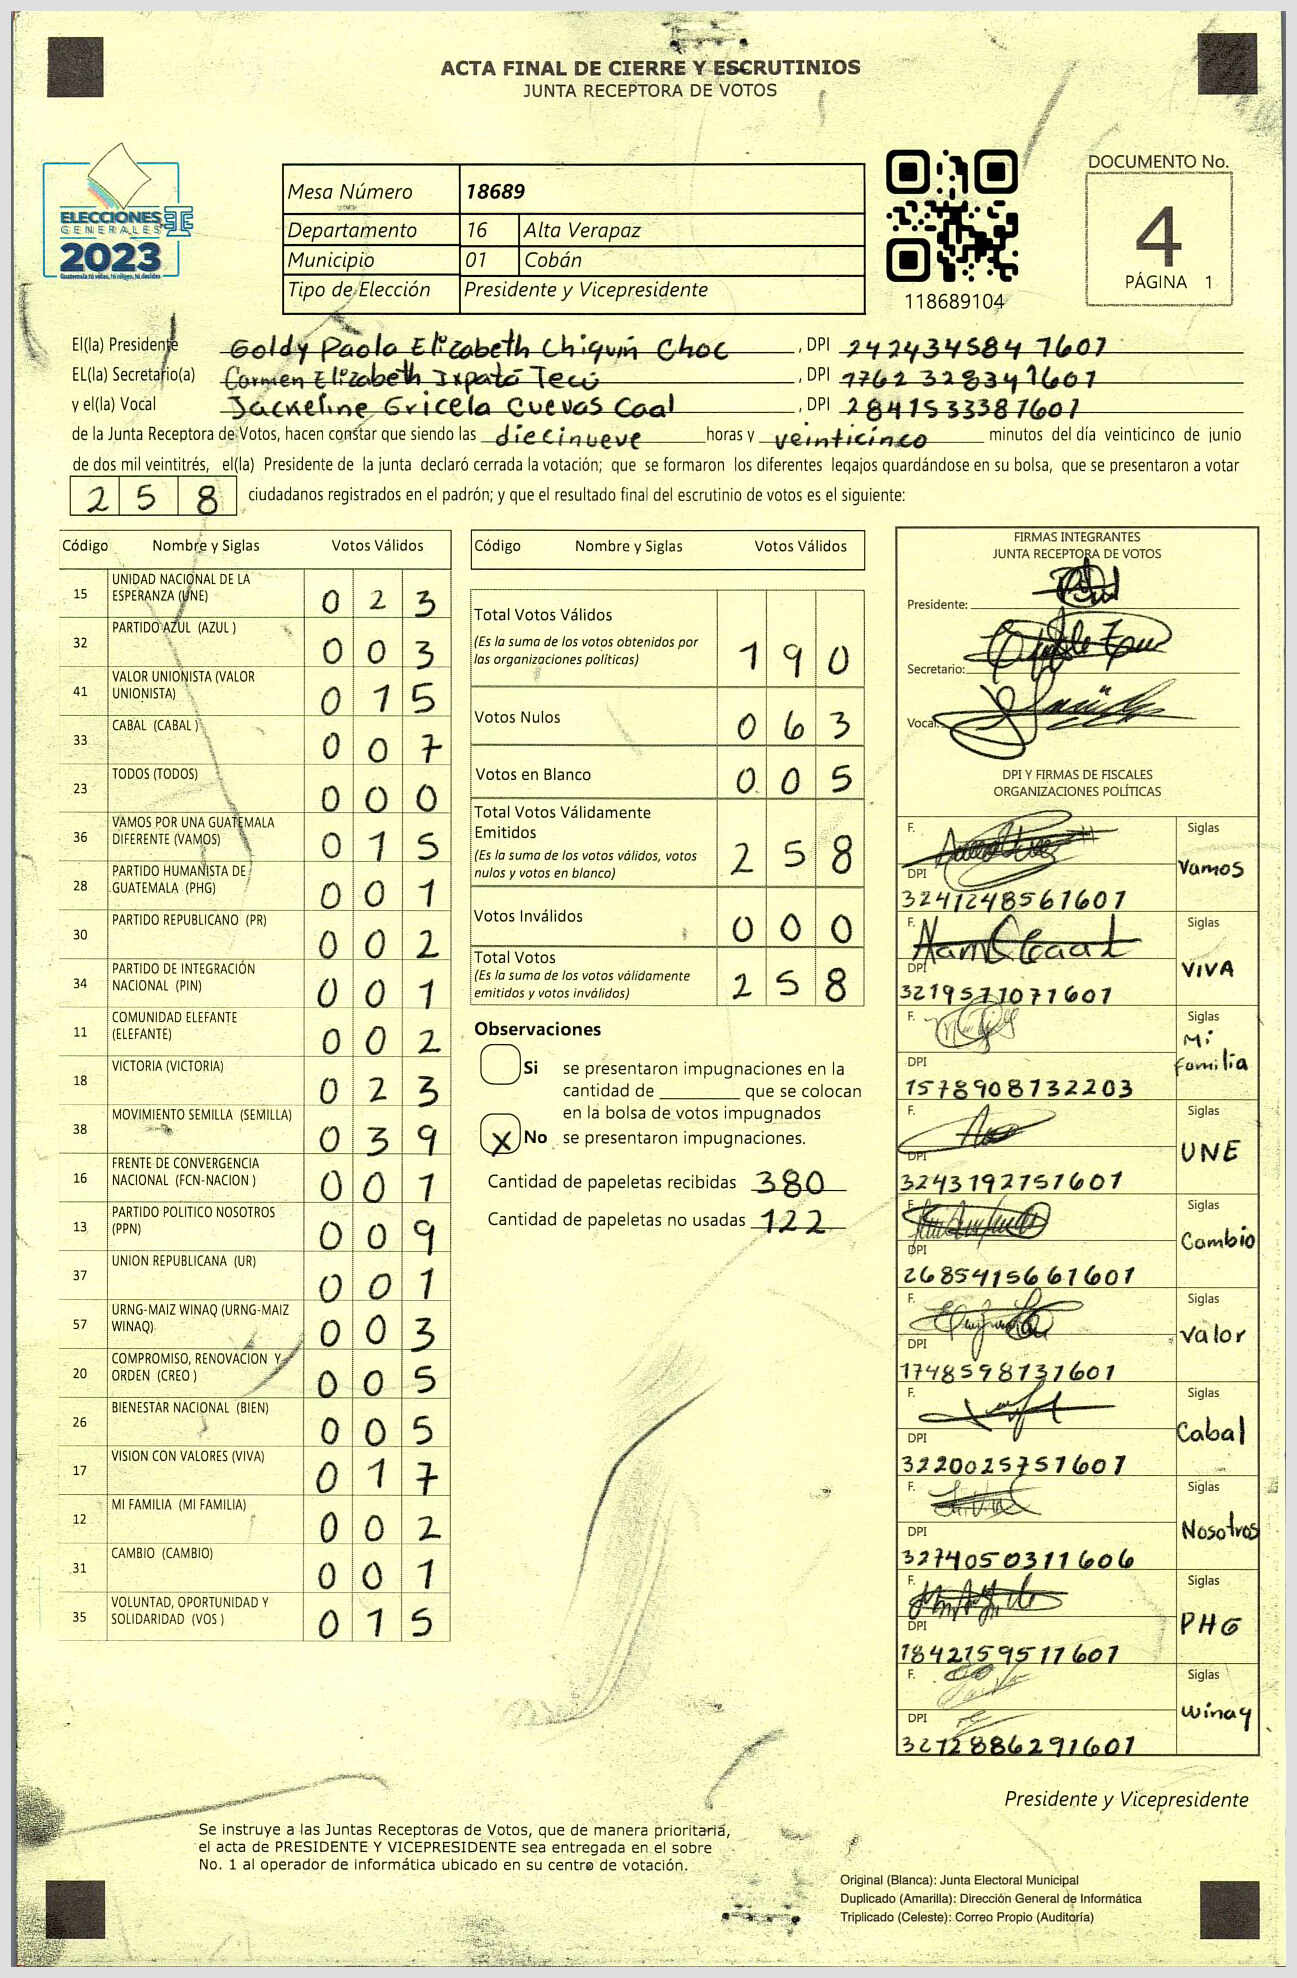 ACTA FINAL DE CIERRE Y ESCRUTINIOS
JUNTA RECEPTORA DE VOTOS
ELECCIONES
GENERALES
2023
Mesa Número 18689
Departamento 16 Alta Verapaz
Municipio 01 Cobán
Tipo de Elección Presidente y Vicepresidente
118689104
DOCUMENTO No.
4
PÁGINA 1
El(la) Presidente Goldy Paola Elizabeth Chiquin Choc , DPI 242434584 1601
EL(la) Secretario(a) Carmen Elizabeth Ixpatá Tecú , DPI 1762 32834 1601
y el(la) Vocal Jackeline Gricela Cuevas Caal , DPI 2841533381601
de la Junta Receptora de Votos, hacen constar que siendo las diecinueve horas y veinticinco minutos del día veinticinco de junio
de dos mil veintitrés, el(la) Presidente de la junta declaró cerrada la votación; que se formaron los diferentes legajos guardándose en su bolsa, que se presentaron a votar
258 ciudadanos registrados en el padrón; y que el resultado final del escrutinio de votos es el siguiente:
Código Nombre y Siglas Votos Válidos
15 UNIDAD NACIONAL DE LA ESPERANZA (UNE) 0 2 3
32 PARTIDO AZUL (AZUL ) 0 0 3
41 VALOR UNIONISTA (VALOR UNIONISTA) 0 1 5
33 CABAL (CABAL ) 0 0 7
23 TODOS (TODOS) 0 0 0
36 VAMOS POR UNA GUATEMALA DIFERENTE (VAMOS) 0 1 5
28 PARTIDO HUMANISTA DE GUATEMALA (PHG) 0 0 1
30 PARTIDO REPUBLICANO (PR) 0 0 2
34 PARTIDO DE INTEGRACIÓN NACIONAL (PIN) 0 0 1
11 COMUNIDAD ELEFANTE (ELEFANTE) 0 0 2
18 VICTORIA (VICTORIA) 0 2 3
38 MOVIMIENTO SEMILLA (SEMILLA) 0 3 9
16 FRENTE DE CONVERGENCIA NACIONAL (FCN-NACION ) 0 0 1
13 PARTIDO POLITICO NOSOTROS (PPN) 0 0 9
37 UNION REPUBLICANA (UR) 0 0 1
57 URNG-MAIZ WINAQ (URNG-MAIZ WINAQ) 0 0 3
20 COMPROMISO, RENOVACION Y ORDEN (CREO ) 0 0 5
26 BIENESTAR NACIONAL (BIEN) 0 0 5
17 VISION CON VALORES (VIVA) 0 1 7
12 MI FAMILIA (MI FAMILIA) 0 0 2
31 CAMBIO (CAMBIO) 0 0 1
35 VOLUNTAD, OPORTUNIDAD Y SOLIDARIDAD (VOS ) 0 1 5
Código Nombre y Siglas Votos Válidos
Total Votos Válidos
(Es la suma de los votos obtenidos por
las organizaciones políticas) 1 9 0
Votos Nulos 0 6 3
Votos en Blanco 0 0 5
Total Votos Válidamente
Emitidos
(Es la suma de los votos válidos, votos
nulos y votos en blanco) 2 5 8
Votos Inválidos 0 0 0
Total Votos
(Es la suma de los votos válidamente
emitidos y votos inválidos) 2 5 8
Observaciones
Si se presentaron impugnaciones en la
cantidad de ________ que se colocan
en la bolsa de votos impugnados
X No se presentaron impugnaciones.
Cantidad de papeletas recibidas 380
Cantidad de papeletas no usadas 122
FIRMAS INTEGRANTES
JUNTA RECEPTORA DE VOTOS
Presidente:
Secretario:
Vocal:
DPI Y FIRMAS DE FISCALES
ORGANIZACIONES POLÍTICAS
F. Siglas
DPI Vamos
3241248561601
F. Siglas
DPI VIVA
3219571071601
F. Siglas
DPI Mi familia
1578908732203
F. Siglas
DPI UNE
3243192751601
F. Siglas
DPI Cambio
2685415661601
F. Siglas
DPI Valor
1748598131601
F. Siglas
DPI Cabal
3220025751601
F. Siglas
DPI Nosotros
3274050311606
F. Siglas
DPI PHG
1842159511601
F. Siglas
DPI Winaq
3272886291601
Presidente y Vicepresidente
Se instruye a las Juntas Receptoras de Votos, que de manera prioritaria,
el acta de PRESIDENTE Y VICEPRESIDENTE sea entregada en el sobre
No. 1 al operador de informática ubicado en su centro de votación.
Original (Blanca): Junta Electoral Municipal
Duplicado (Amarilla): Dirección General de Informática
Triplicado (Celeste): Correo Propio (Auditoría)